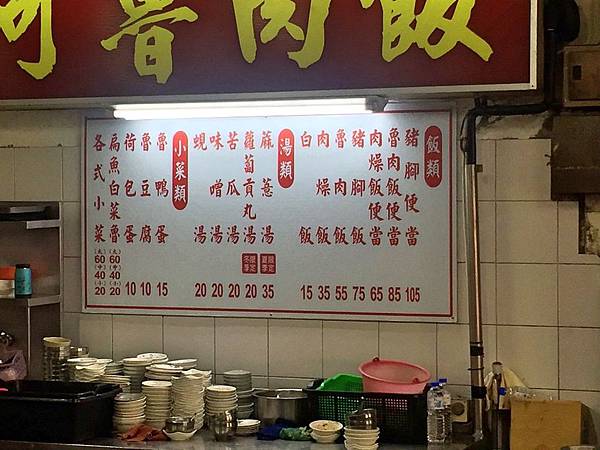 魯肉飯
飯類
豬腳便當 105
魯肉飯便當 85
肉燥飯便當 65
豬腳飯 75
魯肉飯 55
肉燥飯 35
白飯 15
湯類
蔴薏湯 夏季限定 35
蘿蔔貢丸湯 冬季限定 20
苦瓜湯 20
味噌湯 20
蜆湯 20
小菜類
魯鴨蛋 15
魯豆腐 10
荷包蛋 10
扁魚白菜魯 (大) 60 (中) 40 (小) 20
各式小菜 (大) 60 (中) 40 (小) 20